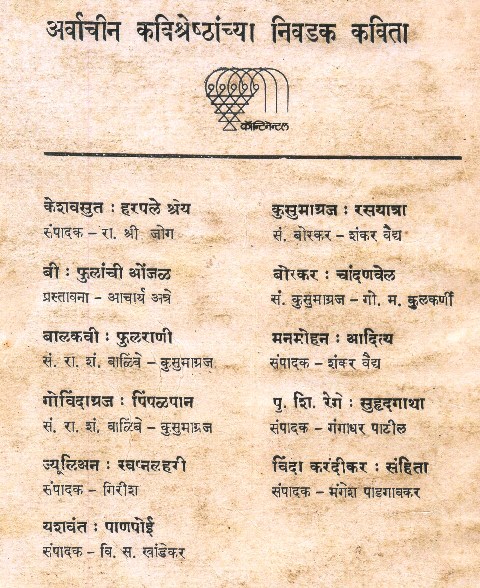 अर्वाचीन कविश्रेष्ठांच्या निवडक कविता
कॉन्टिनेन्टल
केशवसुत : हरपले श्रेय
संपादक – रा. श्री जोग
बी : फुलांची ओंजळ
प्रस्तावना – आचार्य अत्रे
बालकवी : फुलराणी
सं. रा. शं. वाळिंबे – कुसुमाग्रज
गोविंदाग्रज : पिंपळपान
सं. रा. शं. वाळिंबे – कुसुमाग्रज
ज्यूलिअन : स्वप्नलहरी
संपादक – गिरीश
यशवंत : पाणपोई
संपादक – वि. स. खांडेकर
कुसुमाग्रज : रसयात्रा
सं. बोरकर – शंकर वैद्य
बोरकर : चांदणवेल
सं. कुसुमाग्रज – गो. म. कुलकर्णी
मनमोहन : आदित्य
संपादक – शंकर वैद्य
पु. शि. रेगे : सुहृदगाथा
संपादक – गंगाधर पाटील
विंदा करंदीकर : संहिता
संपादक – मंगेश पाडगावकर